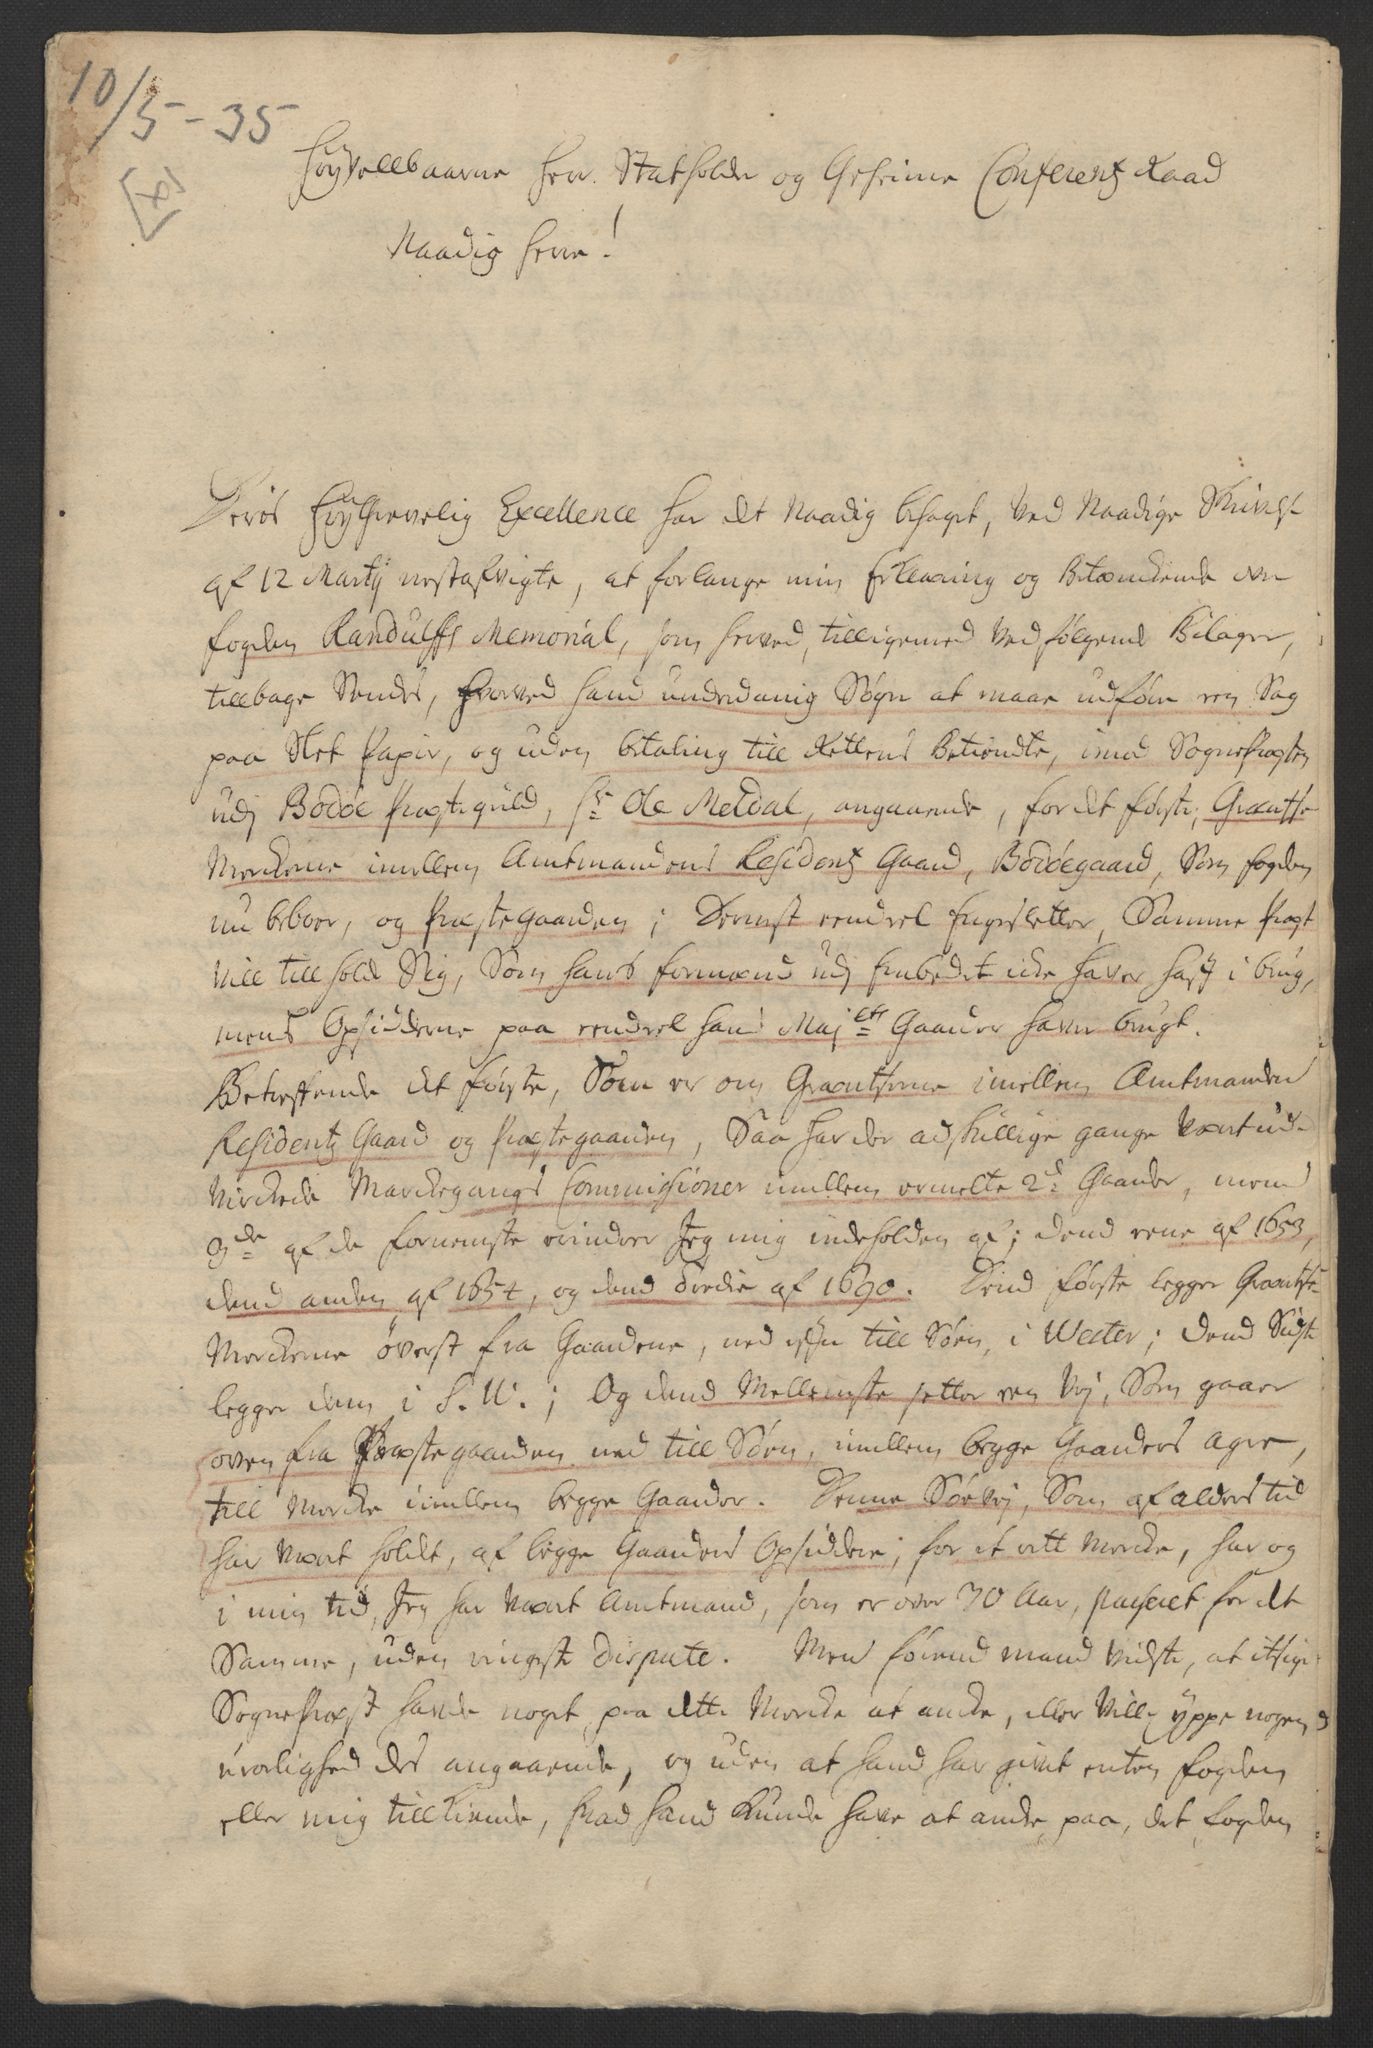 10/5-35
[x]
Høyvellbaarne Herr. Statholder og Geheime Conferentz Raad
Naadig Herre!
Deris HøyGrevelig Excellence har det Naadig behaget, ved Naadige Skrivelse
af 12 Martÿ nestafvigte, at forlange min Erklæring og Betænckende over
fogden Randulffs Memorial, som herved, tilligemed Vedfølgende Bilager,
tillbage Sendes, hvorved hand underdanig Søger at maae udføre een Sag
paa Slet Papir, og uden betaling till Rettens Betiendte, imod Sognepræsten
udj Bodøe Præstegield, Hr Ole Meldal, angaaende, for det første, Grentse
Merckerne imellem Amtmandens Residentz Gaard, Bodøegaard, Som fogden
nu beboer, og Præstegaarden; Dernest eendeel Engesletter, Samme Præst
vill tillholde Sig, Som hans formænd udj Embedet icke haver haft i brug,
mens Opsidderne paa eendeel hans Majts Gaarder haver brugt.
Betreffende det første, Som er om Grentserne imellem Amtmanden
Residentz Gaard og Præstegaarden, Saa har der adskillige gange Været ud-
virckede Marckegangs Commissioner imellem ermelte 2de Gaarder, mens
3de af de fornemste erindrer Jeg mig indeholden af; dend eene af 1653,
dend anden af 1654, og dend tredie af 1690. Dend første legger Grentse-
Merckerne øverst fra Gaardene, ned efter till Søen, i Wester; dend Sidste
legger dem i S.W.; Og dend Mellemste setter een Vej, Som gaaer
oven fra Præstegaarden ned till Søen, imellem begge Gaarders agre,
till Mercke imellem begge Gaarder. Denne Søe Vej, Som af alders tid
har Været holdt, af begge Gaarders Opsiddere, for et rett Mercke, har og
i min tid, Jeg har Været Amtmand, som er over 30 Aar, passeret for det
Samme, uden ringeste Dispute. Men førend mand Vidste, at itzige
Sognepræst hafde noget paa dette Mercke at ancke, eller Ville yppe nogen
uroelighed des angaaende, og uden at hand har givet enten fogden
eller mig tillkiende, hvad hand kunde have at ancke paa, det fogden